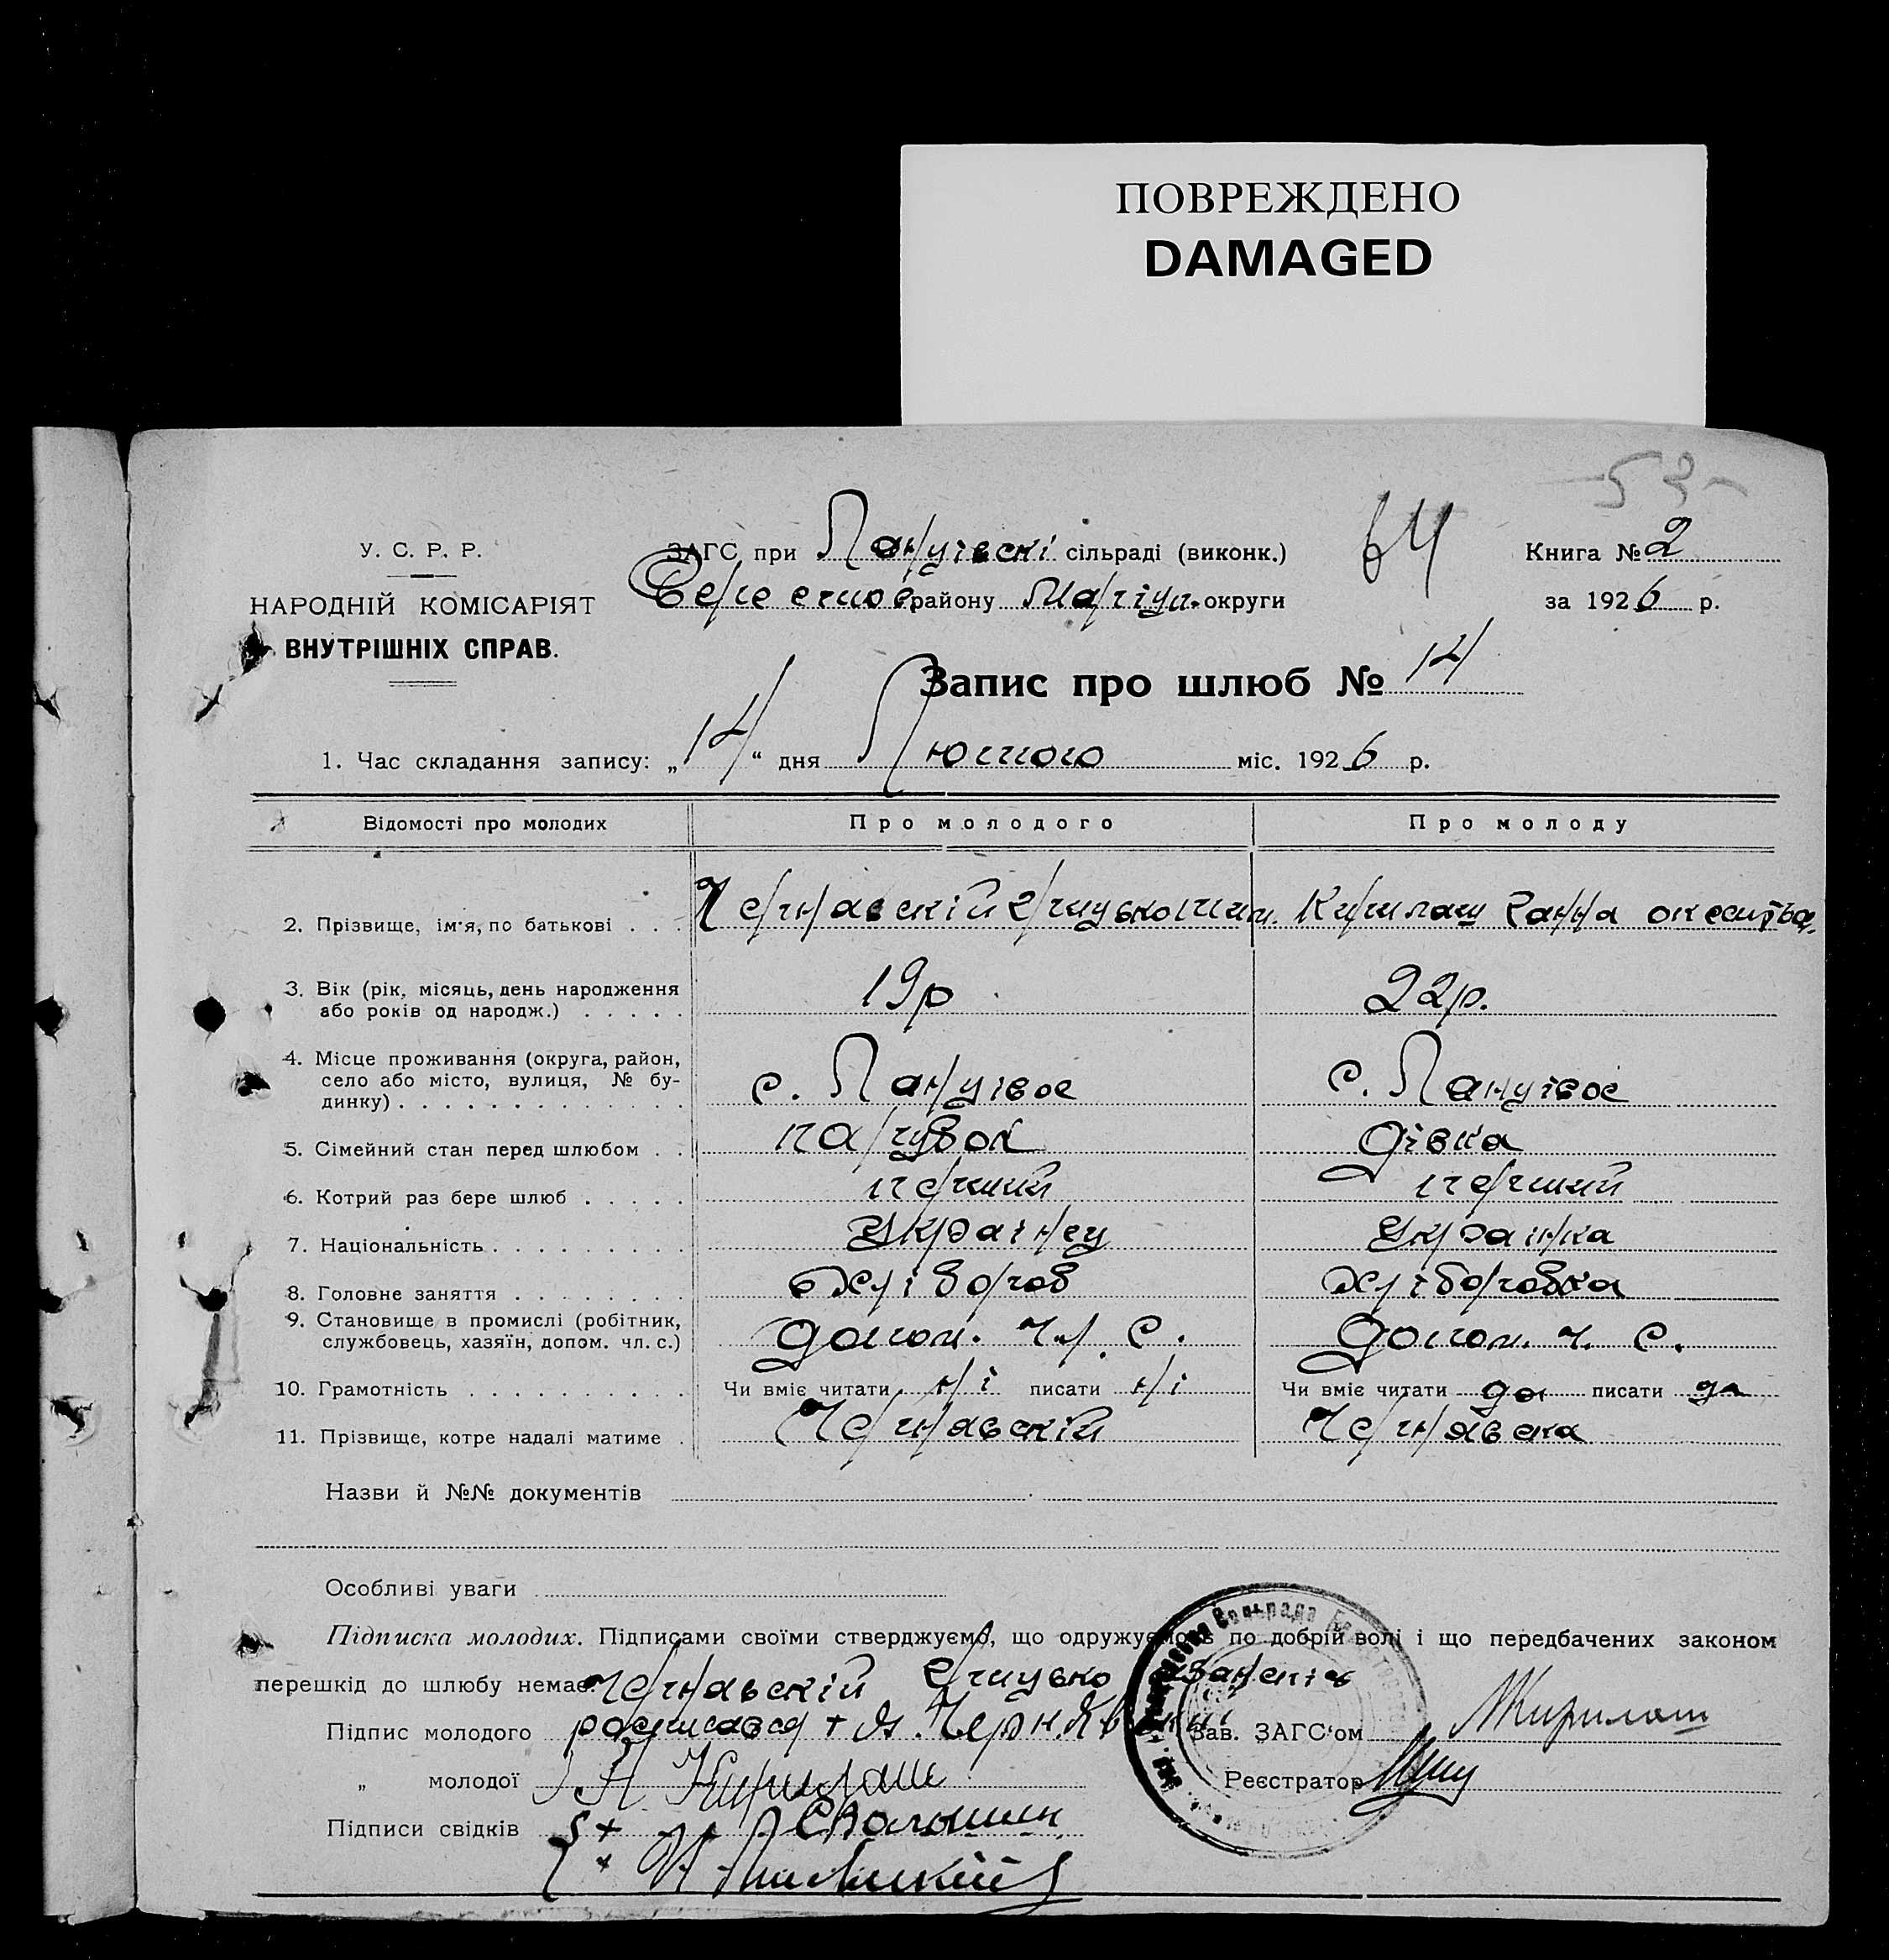 ПОВРЕЖДЕНО
DAMAGED
53
У. С. Р. Р.
НАРОДНІЙ КОМІСАРІЯТ
ВНУТРІШНІХ СПРАВ.
ЗАГС при сільраді (виконк.)
64
Книга № 2
району Маріуп. округи
за 1926 р.
Запис про шлюб № 14
1. Час складання запису: „14“ дня Лютого міс. 1926 р.
Відомості про молодих Про молодого Про молоду
2. Прізвище, ім'я, по батькові . . . Чернавскій Кирилаш Ганна
3. Вік (рік, місяць, день народження
або років од народж.) . . . . . 19р 22р.
4. Місце проживання (округа, район,
село або місто, вулиця, № бу-
динку) . . . . . . . . . . . . . с. с.
5. Сімейний стан перед шлюбом . . парубок дівка
6. Котрий раз бере шлюб . . . . . перший перший
7. Національність . . . . . . . . . Українец Українка
8. Головне заняття . . . . . . . . хлібороб хліборобка
9. Становище в промислі (робітник,
службовець, хазяїн, допом. чл. с.) допом. чл. с. допом. ч. с.
10. Грамотність . . . . . . . . . . Чи вміє читати ні писати ні Чи вміє читати да писати да
11. Прізвище, котре надалі матиме . Чернявскій Чернявска
Назви й №№ документів
Особливі уваги
Підписка молодих. Підписами своїми стверджуємо, що одружуємось по добрій волі і що передбачених законом
перешкід до шлюбу немає. Чернавскій
Підпис молодого Зав. ЗАГС'ом Кирилаш
„ молодої Н Кирилаш Реєстратор
Підписи свідків